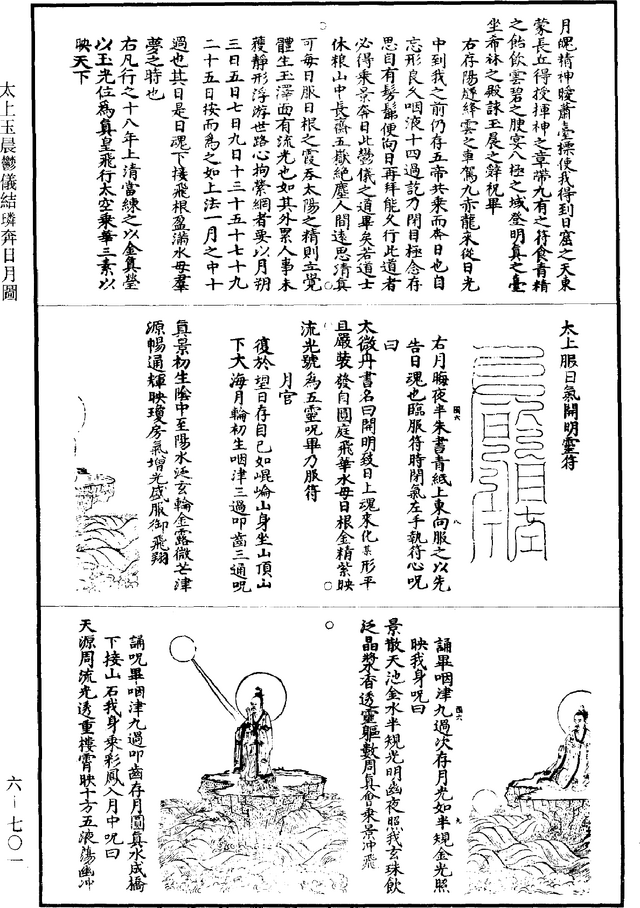 太上玉晨鬱儀結璘奔日月圖
六－七〇一
月魂精神曖蕭臺標使我得到日窟之天東
蒙長丘得授揮神之章帶九有之符食青精
之飴飲雲碧之腴宴八極之城登明真之臺
坐希林之殿誦玉晨之辭祝畢
右存陽燧絳雲之車駕九赤龍來從日光
中到我之前仍存五帝共乘而奔日也自
忘形良久咽液十四過訖乃閉目極念存
思目有髣髴便向日再拜能久行此道者
必得乘景奔日此鬱儀之道畢矣若道士
休粮山中長齋五嶽絕塵人間遠思清真
可每日服日根之霞吞太陽之精則立覺
體生玉澤面有流光也如其外累人事未
獲靜形浮游世路心拘業網者要以月朔
三日五日七日九日十三十五十七十九
二十五日按而為之如上法一月之中十
過也其日是日魂下接飛根盈滿水母羣
夢之時也
右凡行之十八年上清當練之以金真瑩
以玉光位為真皇飛行太空乘華三素以
映天下
太上服日氣開明靈符
右月晦夜半朱書青紙上東向服之以先
告日魂也臨服符時閉氣左手執符心呪
曰
太微丹書名曰開明致日上魂來化某形平
旦嚴裝發自圓庭飛華水母日根金精紫映
流光號為五靈呪畢乃服符
月宮
復於望日存自己如崐崘山身坐山頂山
下大海月輪初生咽津三過叩齒三通呪
真景初生陰中至陽水泛玄輪金露微芒津
源暢通輝映瓊房氣增光盛服御飛翔
誦畢咽津九過次存月光如半規金光照
映我身呪曰
景散天池金水半規光明幽夜照我玄珠飲
泛晶漿香透靈軀數周真會乘景冲飛
誦呪畢咽津九過叩齒存月圓真水成橋
下接山石我身乘彩鳳入月中呪曰
天源周流光透重樓霄映十方五液蕩幽冲